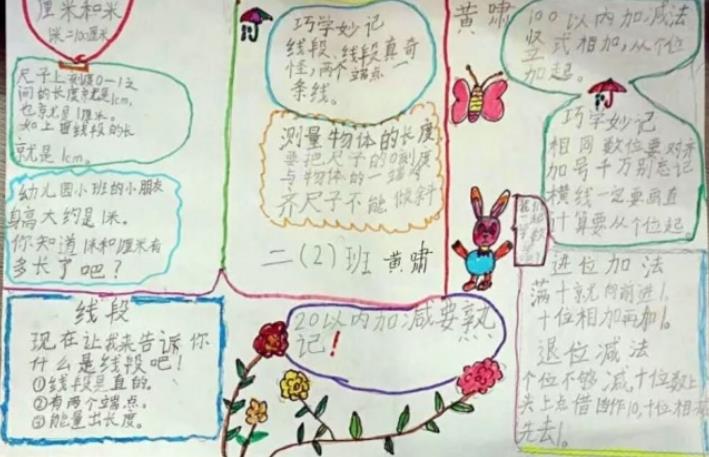 厘米和米
1米=100厘米
尺子上刻度0-1之
间的长度就是1cm,
也就是1厘米。
如上面线段的长
就是1cm。
幼儿园小班的小朋友
身高大约是1米。
你知道1米和1厘米有
多长了吧？
线段
现在让我来告诉你
什么是线段吧！
①线段是直的。
②有两个端点。
③能量出长度。
巧学妙记
线段、线段真奇
怪,两个端点一
条线。
测量物体的长度
要把尺子的0刻度
与物体的一端对
齐尺子不能做斜
二(2)班 黄啸
20以内加减要熟
记！
黄啸
100以内加减法
竖式相加,从个位
加起。
巧学妙记
相同数位要对齐
加号千万别忘记
横线一定要画直
计算要从个位起
进位加法
满十就向前进1,
十位相加再加1。
退位减法
个位不够减,十位数上
头上点借1当作10,十位相减
先去1。